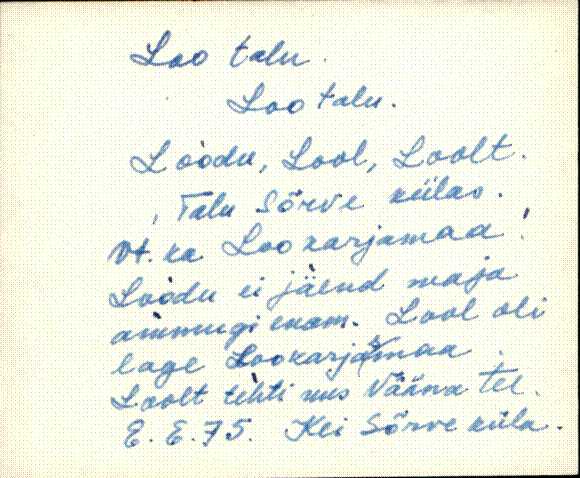 Loo talu.
Loo talu.
Lòodu, Lool, Loolt.
Talu Sõrve külas.
Vt. ka Lookarjamaa.
Lòodu ei jäend maja
ammugi enam. Lool oli
lage Lookarjamaa.
Loolt tehti uus Vääna tel.
E. E. 75. Kei Sõrve küla.